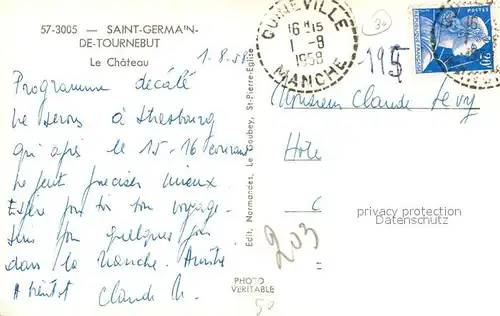 57-3005 — SAINT-GERMAIN-
DE-TOURNEBUT
Le Château
1.8.58
Programme décalé
ne serons à Strasbourg
qu'après le 15-16 courant
Le peut préciser mieux.
Espère ton voyage.
suis pour quelques jours
dans la Manche. Amitié
A bientôt Claude
Edit. Normandes, Le Goubey, St-Pierre-Eglise
PHOTO
VERITABLE
QUINEVILLE
16 H 15
1 - 8
1958
MANCHE
POSTES
20F
195
Monsieur Claude Levy
203
privacy protection
Datenschutz